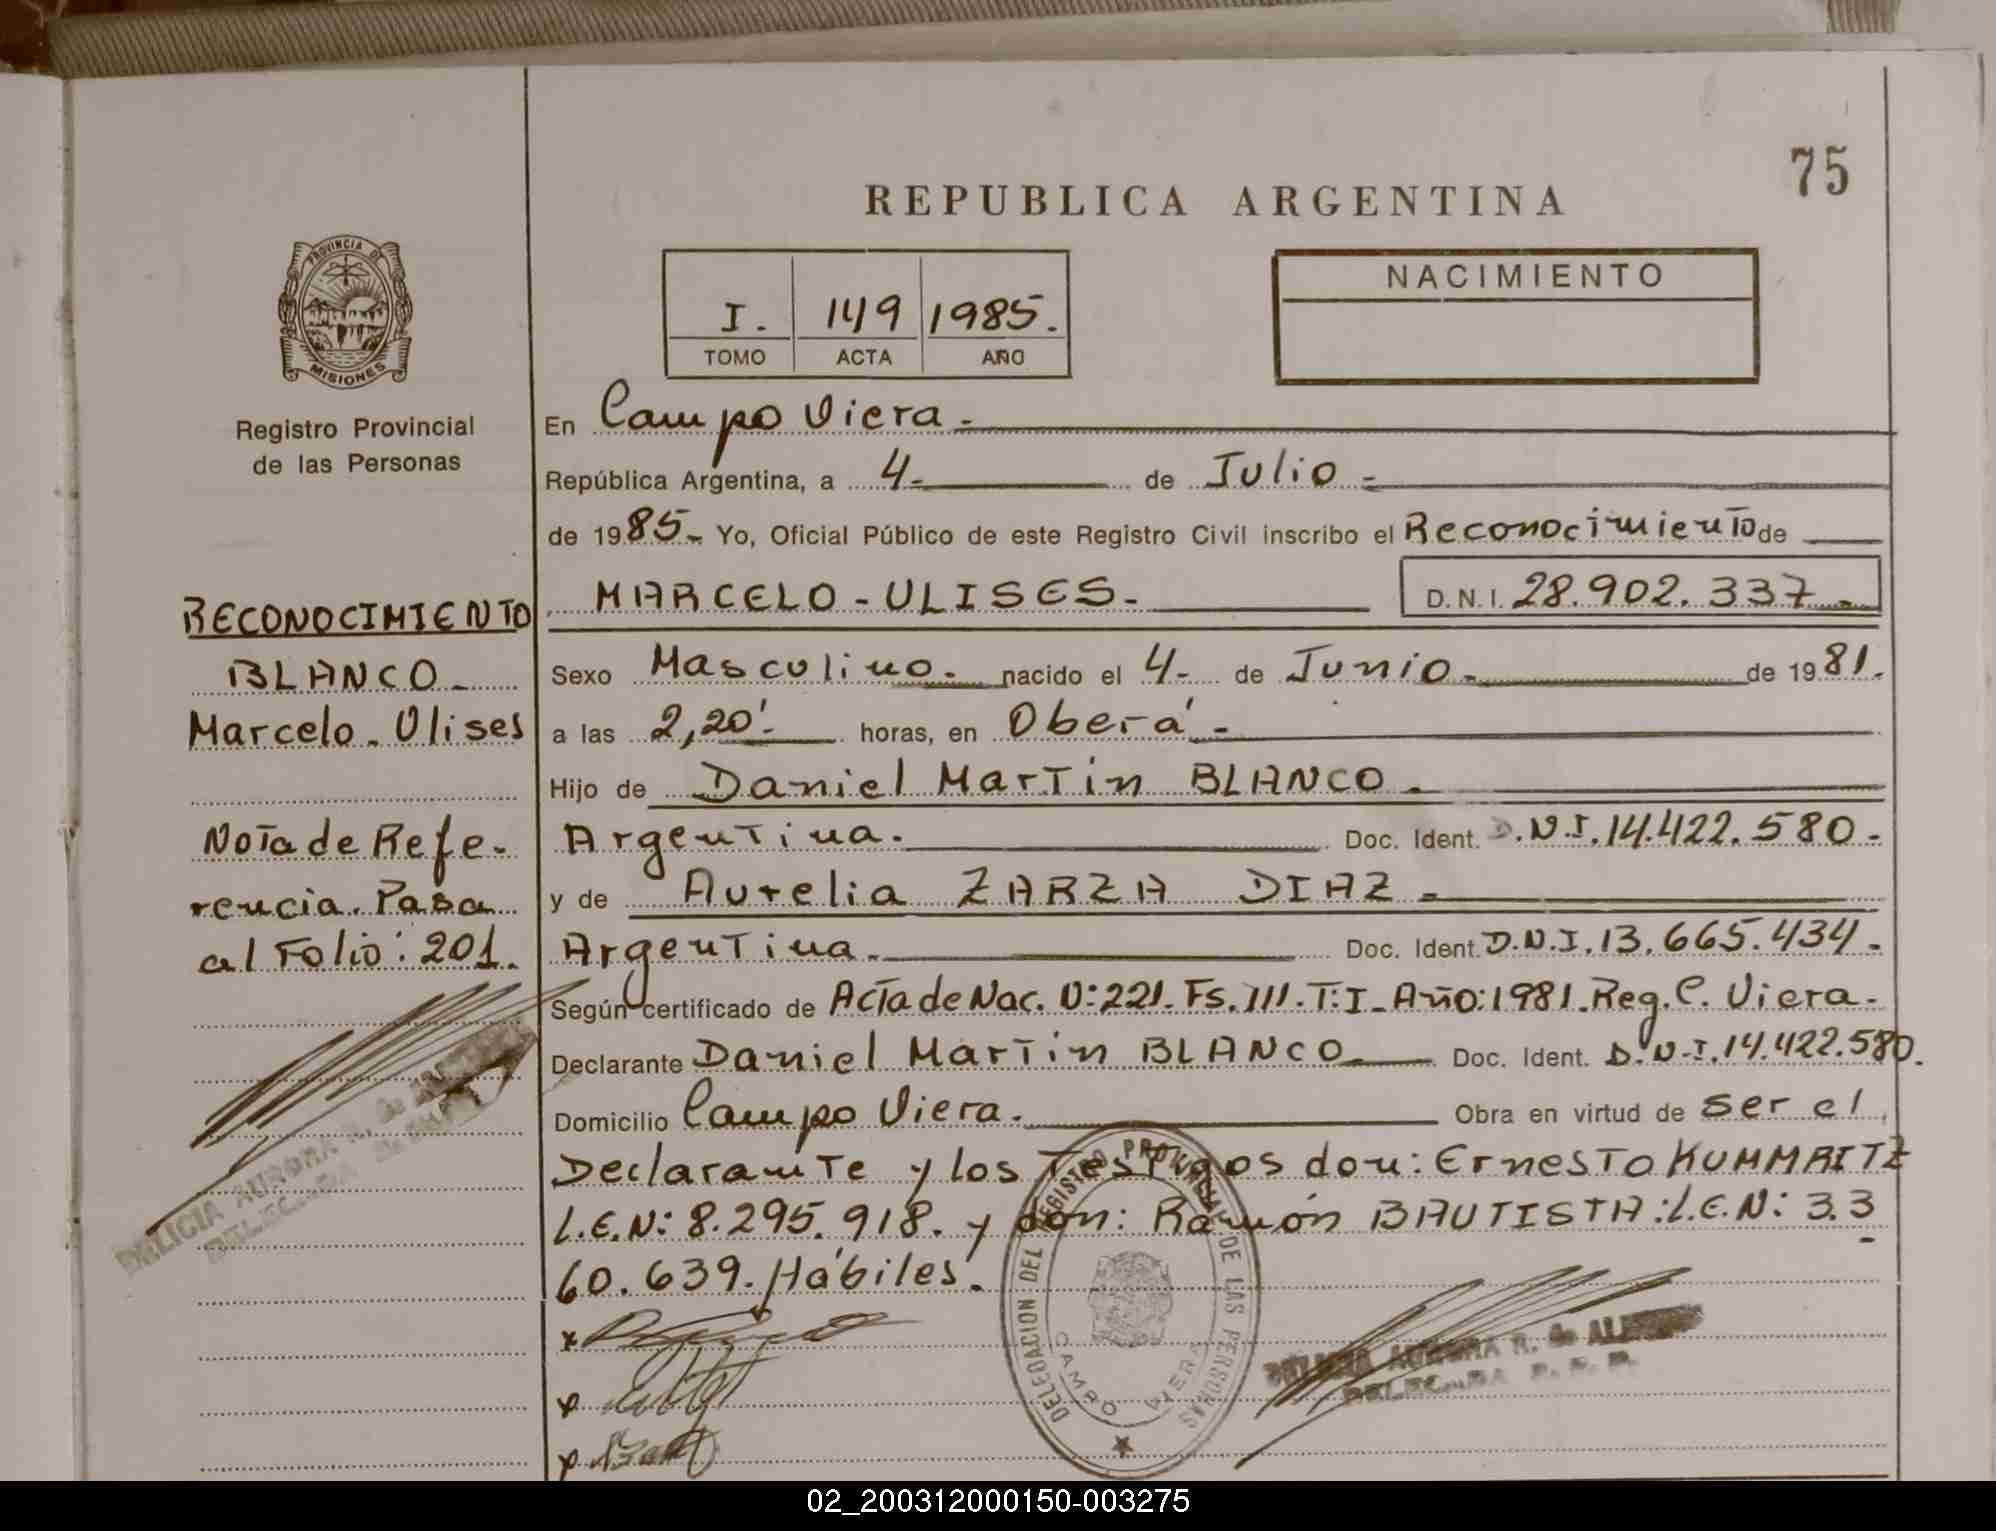 75
REPUBLICA ARGENTINA
PROVINCIA DE
MISIONES
Registro Provincial
de las Personas
I. 149 1985.
TOMO ACTA AÑO
NACIMIENTO
En Campo Viera.-
República Argentina, a 4- de Julio-
de 1985- Yo, Oficial Público de este Registro Civil inscribo el Reconocimiento de
MARCELO-ULISES- D.N.I. 28.902.337-
Sexo Masculino- nacido el 4- de Junio- de 1981.
a las 2,20'- horas, en Oberá-
Hijo de Daniel Martin BLANCO.
Argentina. Doc. Ident. D.N.I. 14.422.580-
y de Aurelia ZARZA DIAZ-
Argentina. Doc. Ident. D.N.I. 13.665.434-
Según certificado de Acta de Nac. N:221. Fs. 111. T:I- Año:1981. Reg. C. Viera-
Declarante Daniel Martin BLANCO- Doc. Ident. D.N.I. 14.422.580.
Domicilio Campo Viera. Obra en virtud de ser el
Declarante y los Testigos don: Ernesto KUMMRITZ
L.E.N: 8.295.918. y don: Ramón BAUTISTA: L.E.N: 3.3
60.639. Hábiles.
RECONOCIMIENTO
BLANCO-
Marcelo-Ulises
Nota de Refe-
rencia. Pasa
al Folio: 201.
DELICIA AURORA R. de
DELEGADA
DELEGACION DEL REGISTRO PROVINCIAL DE LAS PERSONAS
CAMPO VIERA
DELICIA AURORA R. de
DELEGADA R. P. P.
02_200312000150-003275